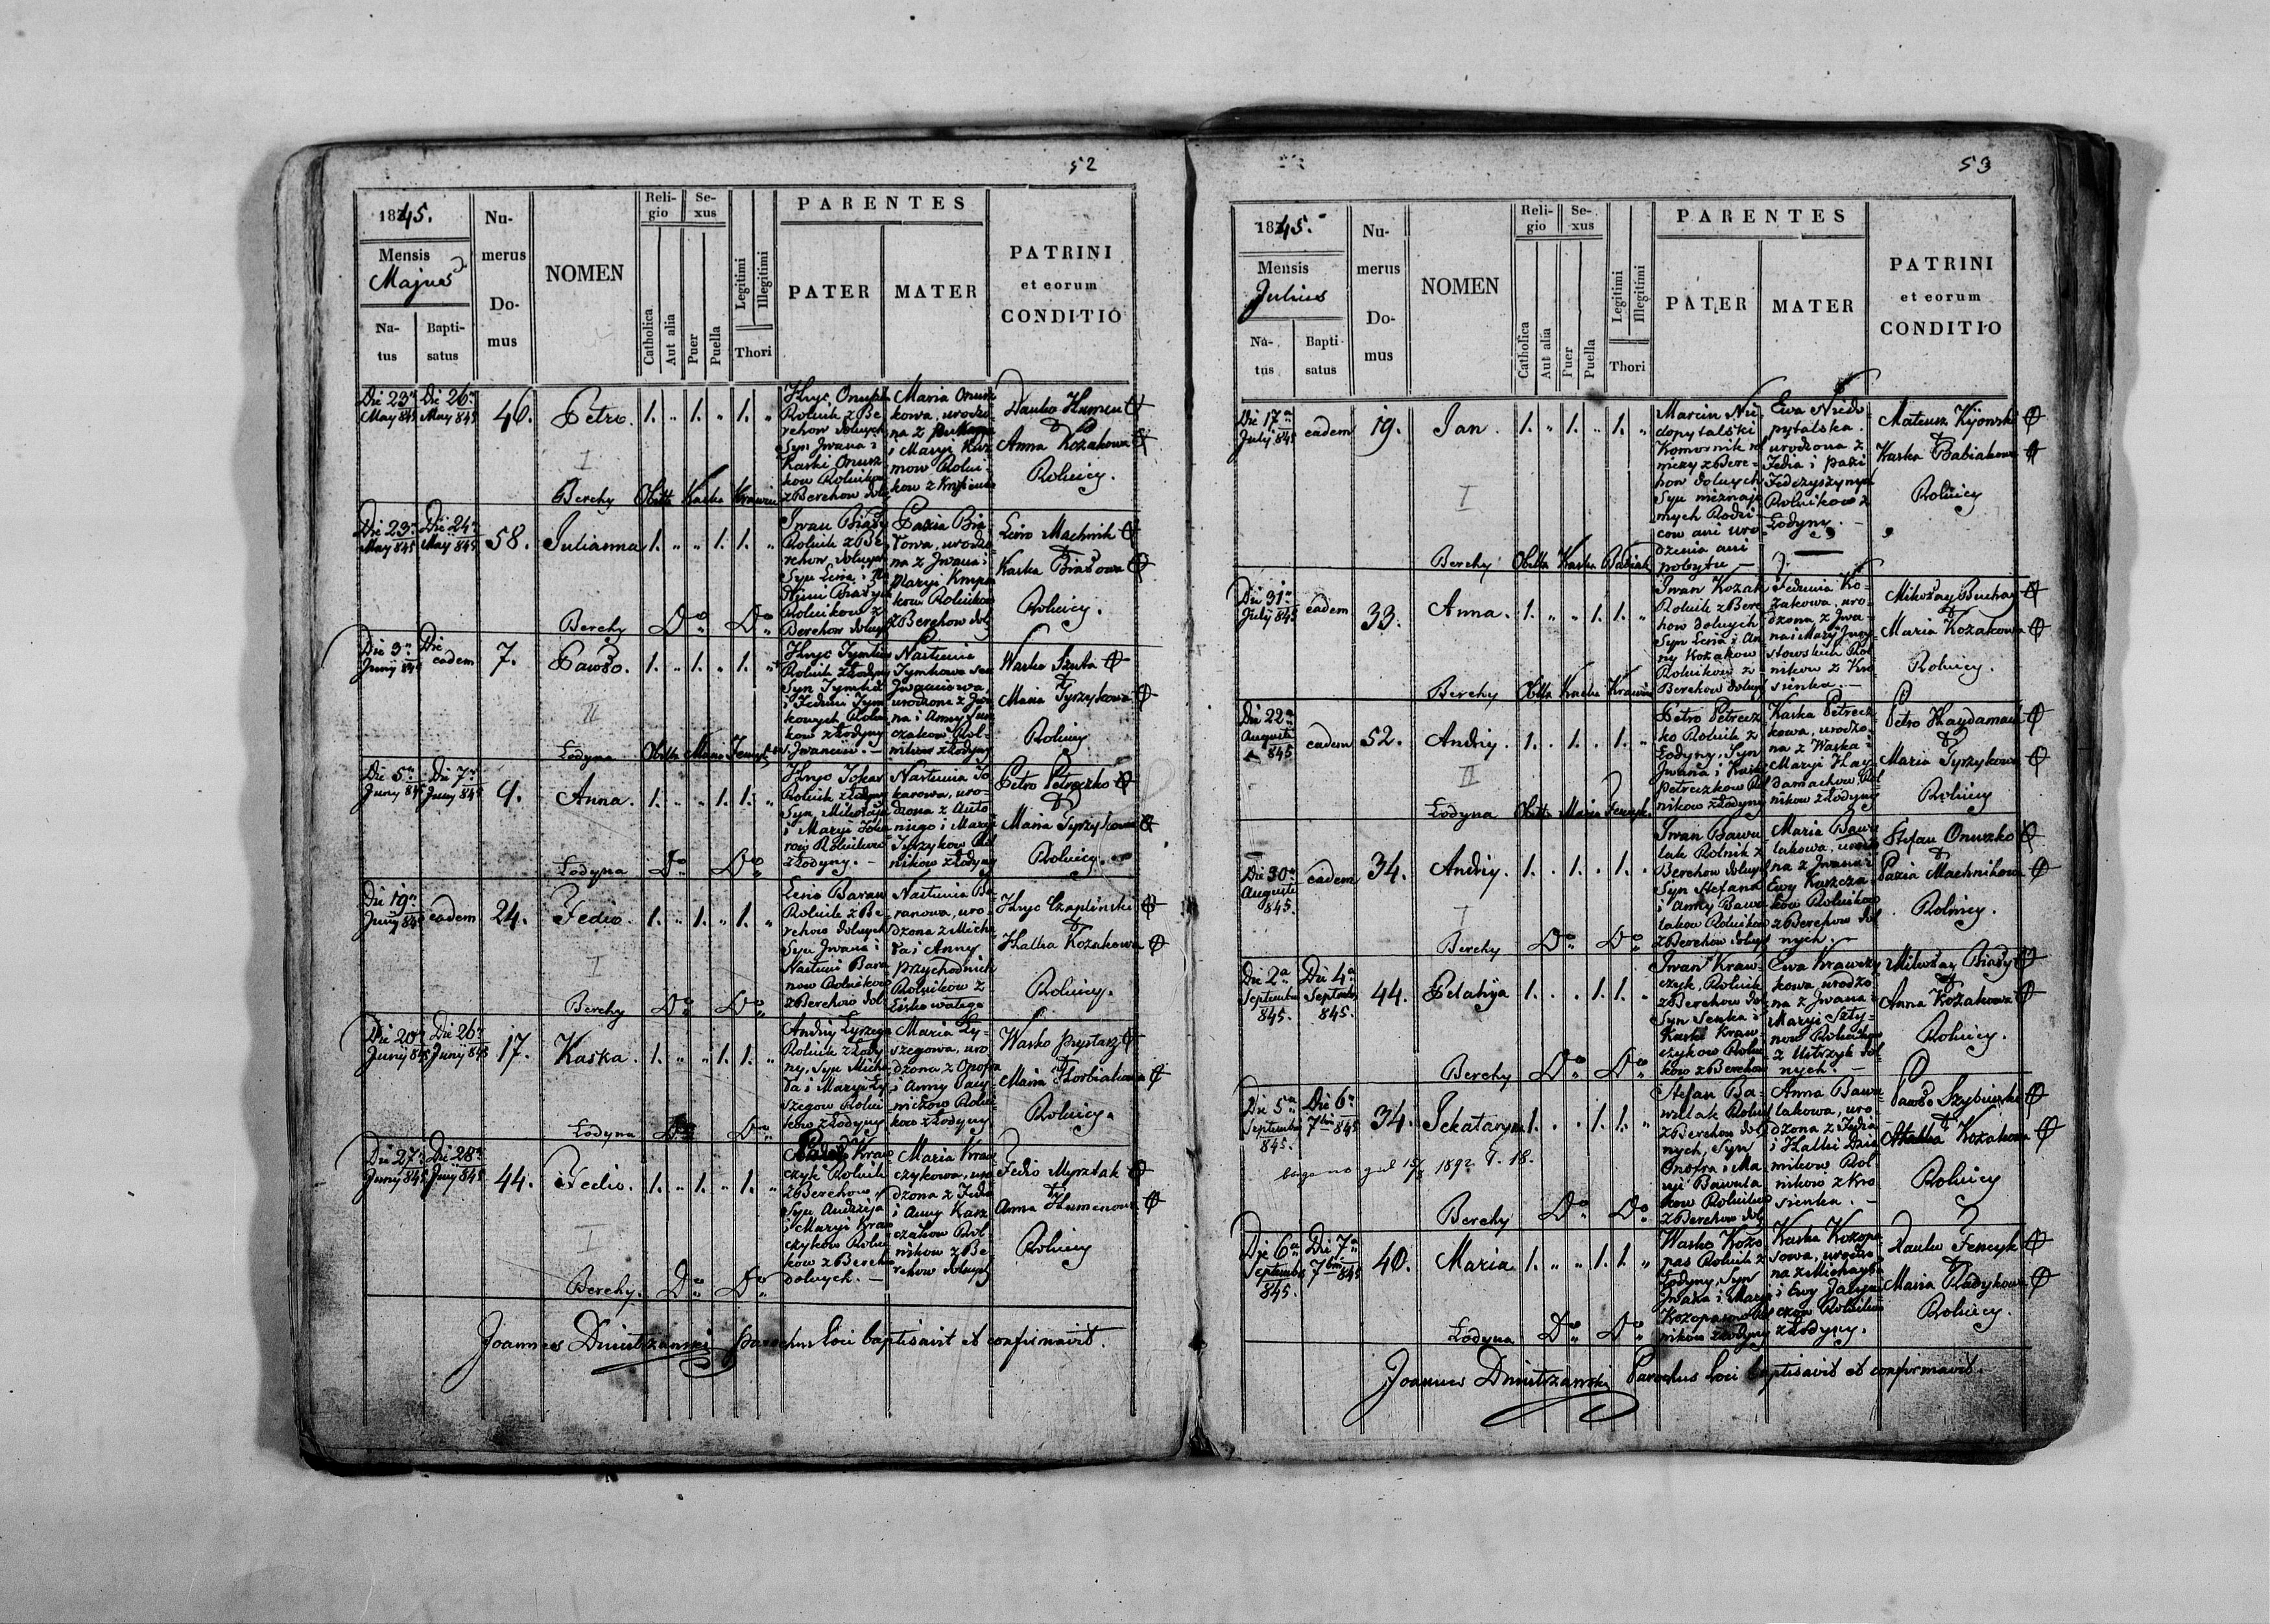 52
1845.
Mensis
Majus
Natus
Baptisatus
Numerus Domus
NOMEN
Religio
Catholica
Aut alia
Sexus
Puer
Puella
Legitimi
Illegitimi
Thori
PARENTES
PATER
MATER
PATRINI
et eorum
CONDITIO
Die 23a May 845
Die 26a May 845
46.
Petro.
1. „ 1. „ 1. „
Hryc
Rolnik z Be
rchow dolnych
Syn Jwana i
Kaski Onusz
kow Rolnikow
z Berchow dol
Maria Onusz
kowa, urodzo
na z
i Maryi
mow Rolni-
kow z
Danko Humen
Anna Kozakowa
Rolnicy.
I
Berchy
Obste Kaska
Die 23a May 845
Die 24a May 845
58.
Julianna
1. „ „ 1. 1. „
Jwan Biały
Rolnik z Be
rchow dolnych
Syn Lesia i
Rolnikow z
Berchow dolnych
Pazia Bia
łowa, urodzo
na z Jwana i
Maryi
kow Rolnikow
z Berchow dol
Lesio Machnik
Kaska Białowa
Rolnicy.
Berchy Do Do
Die 3a Juny 845
Die eadem
7.
Pawło.
1. „ 1. „ 1. „
Hryc
Rolnik z Łodyny
Syn
i Feduni Tym
kowych Rolni
kow z Łodyny
Nastunia
Tymkowa
urodzona z Jwa
na i Anny
czakow Rol-
nikow z Łodyny
Wasko Szuta
Maria Tyrzykowa
Rolnicy
II
Łodyna
Obste Maria
Die 5a Juny 845
Die 7a Juny 845
9.
Anna.
1. „ „ 1. 1. „
Hryc Tokar
Rolnik z Łodyny
Syn Mikołaja
i Maryi Toka
row Rolnikow
z Łodyny. —
Nastunia To
karowa, uro-
dzona z Anto
niego i Maryi
Tyrzykow Rol
nikow z Łodyny
Petro Petreczko
Maria Tyrzykowa
Rolnicy.
Łodyna Do Do
Die 19a Juny 845
eadem
24.
Fedio.
1. „ 1. „ 1. „
Lesio Baran
Rolnik z Be
rchow dolnych
Syn Jwana i
Nastuni Bara
now Rolnikow
z Berchow dol
Nastunia Ba
ranowa, uro
dzona z Micha
ła i Anny
przychodnich
Rolnikow z
Hryc Czaplinski
Hatka Kozakowa
Rolnicy.
I
Berchy Do Do
Die 20a Juny 845
Die 26a Juny 845
17.
Kaska.
1. „ „ 1. 1. „
Andriy Łyszega
Rolnik z Łody
ny, Syn Micha
ła i Maryi Ły
szegow Rolni
kow z Łodyny
Maria Ły-
szegowa, uro
dzona z Onofra
i Anny
Rolni
kow z Łodyny
Wasko Prystasz
Maria
Rolnicy.
Łodyna Do Do
Die 27a Juny 845
Die 28a Juny 845
44.
Fedio.
1. „ 1. „ 1. „
Kraw
czyk Rolnik
z Berchow,
Syn Andreja
i Maryi Kraw
czykow Rolni
kow z Berchow
dolnych. —
Maria Kraw
czykowa, uro
dzona z Fedia
i Anny Kasz
czakow Rol
nikow z Be
rchow dolnych
Fedio Myrdak
Anna Humenowa
Rolnicy
I
Berchy. Do Do
Joannes Dmitrzanski parochus loci baptisavit et confirmavit.
53
1845.
Mensis
Julius
Natus
Baptisatus
Numerus Domus
NOMEN
Religio
Catholica
Aut alia
Sexus
Puer
Puella
Legitimi
Illegitimi
Thori
PARENTES
PATER
MATER
PATRINI
et eorum
CONDITIO
Die 17a July 845
eadem
19.
Jan.
1. „ 1. „ 1. „
Marcin Nie
dopytalski
Komornik rol
niczy z Berc-
how dolnych
Syn nieznajo
mych Rodzi-
cow ani uro
dzenia ani
pobytu —
Ewa Niedo-
pytalska.
urodzona z
Fedia i Pazi
Fedczyszynych
Rolnikow z
Łodyny. —
Mateusz Kijowski
Kaska Babiakowa
Rolnicy
I
Berchy Obste Kaska Babiak
Die 31a July 845
eadem
33.
Anna.
1. „ „ 1. 1. „
Jwan Kozak
Rolnik z Berc
how dolnych
Syn Lesia i An
ny Kozakow
Rolnikow z
Berchow dolnych
Fedunia Ko-
zakowa, uro-
dzona z Jwa-
na i Maryi
Rol
nikow z Kro
sienka. —
Mikołay
Maria Kozakowa
Rolnicy.
Berchy Obste Kaska
Die 22a Augusti 845
eadem
52.
Andriy.
1. . 1. . 1. „
Petro Petrecz
ko Rolnik z
Łodyny, Syn
Jwana i
Petreczkow Rol
nikow z Łodyny
Kaska Petrecz
kowa, urodzo
na z Waska i
Maryi Hay-
damachow Rol
nikow z Łodyny
Petro Haydamach
Maria Tyrzykowa
Rolnicy
II
Łodyna Obste Maria
Die 30a Augusti 845.
eadem
34.
Andriy.
1. . 1. . 1. „
Jwan Bawu
lak Rolnik z
Berchow dolnych
Syn Stefana
i Anny Bawu
lakow Rolnikow
z Berchow dolnych
Maria Bawu
lakowa, urodzo
na z Jwana i
Ewy Kaszcza
kow Rolnikow
z Berchow dol
nych. —
Stefan Onuszko
Pazia Machnikowa
Rolnicy.
I
Berchy Do Do
Die 2a Septembr 845.
Die 4a Septembr 845.
44.
Pelahija
1. . . 1. 1. „
Jwan Kraw-
czyk, Rolnik
z Berchow dol
Syn Senka i
Kaski Kraw-
czykow Rolni
kow z Berchow
Ewa Krawczy
kowa, urodzo
na z Jwana i
Maryi
now Rolnikow
z Ustrzyk dol
nych. —
Mikołay Biały
Anna Kozakowa
Rolnicy.
Berchy Do Do
Die 5a Septembr 845.
Die 6a 7bris 845
34.
Jekataryna
1. . . 1. 1. „
Stefan Ba-
wulak Rolnik
z Berchow dol
nych, Syn
Onofra i Ma
ryi Bawula
kow Rolnikow
z Berchow dol
Anna Bawu
lakowa, uro-
dzona z Fedia
i Hatki
Rol-
nikow z Kro
sienka. —
Pawło
Hatka Kozakowa
Rolnicy
1892
Berchy Do Do
Die 6a Septembr 845.
Die 7a 7bris 845
40.
Maria
1. „ „ 1. 1. „
Wasko Kozo
pas Rolnik z
Łodyny, Syn
Jwana i Maryi
Kozopasow Rol
nikow z Łodyny
Kaska Kozopa
sowa, urodzo
na z Michayła
i Ewy
Rolnikow
z Łodyny.
Danko Fencyk
Maria Hadykowa
Rolnicy.
Łodyna Do Do
Joannes Dmitrzanski Parochus loci baptisavit et confirmavit.